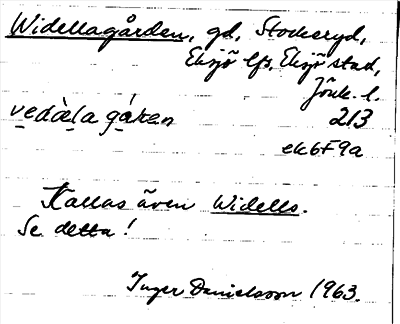 Widellagården, gd, Stockeryd,
Eksjö lfs, Eksjö stad,
Jönk. l.
vedàl̤a gá̤ren 213
ek6F9a
Kallas även Widells.
Se detta!
Inger Danielsson 1963.